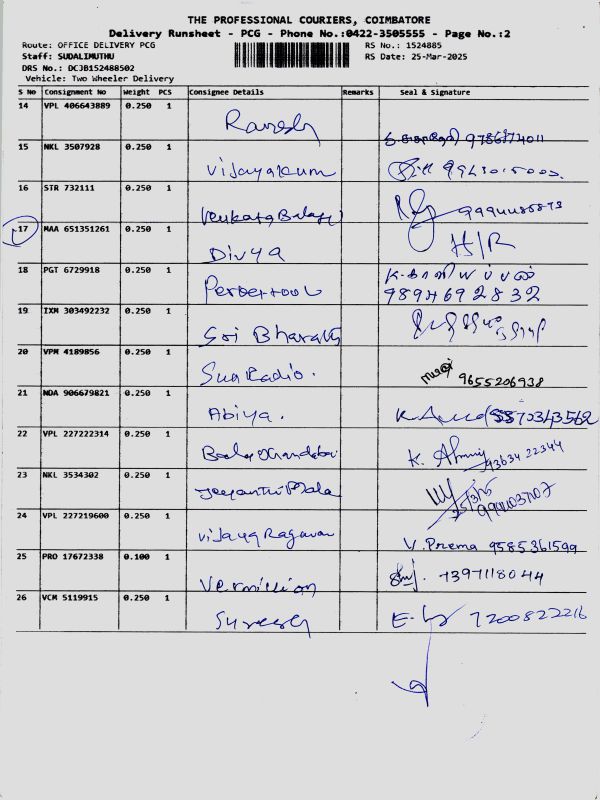 THE PROFESSIONAL COURIERS, COIMBATORE
Delivery Runsheet - PCG - Phone No.:0422-3505555 - Page No.:2
Route: OFFICE DELIVERY PCG RS No.: 1524885
Staff: SUDALIMUTHU RS Date: 25-Mar-2025
DRS No.: DCJB152488502
Vehicle: Two Wheeler Delivery
S No Consignment No Weight PCS Consignee Details Remarks Seal & Signature
14 VPL 406643889 0.250 1
Ramesh
15 NKL 3507928 0.250 1
Vijayakum
16 STR 732111 0.250 1
Venkata Balaji
17 MAA 651351261 0.250 1
Divya H/R
18 PGT 6729918 0.250 1
9894692832
19 IXM 303492232 0.250 1
Sri Bharath
20 VPM 4189856 0.250 1
Sun Radio. 9655206938
21 NDA 906679821 0.250 1
Abiya.
22 VPL 227222314 0.250 1
Balachandar K. 9363422344
23 NKL 3534302 0.250 1
Jeyanthi Mala 25/3/25
24 VPL 227219600 0.250 1
Vijaya Ragavan V. Prema 9585361599
25 PRO 17672338 0.100 1
Vermillion 7397118044
26 VCM 5119915 0.250 1
Suresh 7200822216